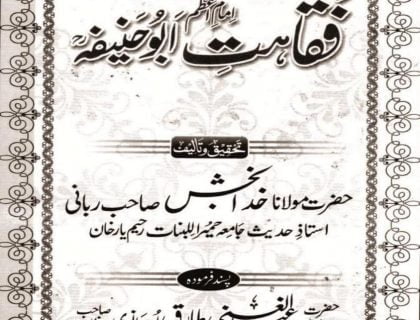 فقاہتِ امام اعظم ابو حنیفہؒ
تحقیق و تالیف
حضرت مولانا خدا بخش صاحب ربانی
استاذِ حدیث جامعہ حمیرا للبنات رحیم یار خان
پسند فرمودہ
حضرت عبد الغنی طارق صاحب